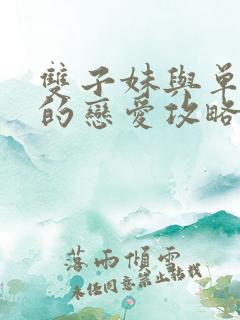 雙子妹與單
的戀愛攻略
落雨傾雲
未任同意禁止転技